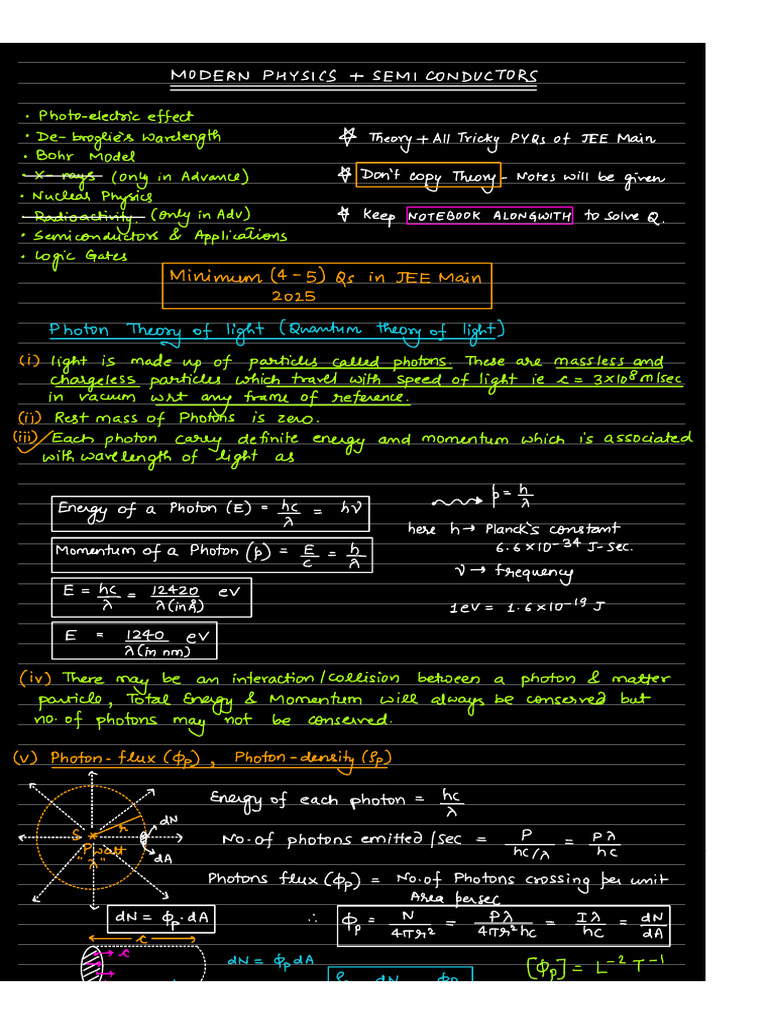 MODERN PHYSICS + SEMI CONDUCTORS
• Photo-electric effect
• De-broglie's wavelength
• Bohr Model
• X-rays (only in Advance)
• Nuclear Physics
• Radioactivity. (only in Adv)
• Semiconductors & Applications
• Logic Gates
☆ Theory + All Tricky PYQs of JEE Main
☆ Don't copy Theory - Notes will be given
☆ Keep NOTEBOOK ALONGWITH to solve Q.
Minimum (4-5) Qs in JEE Main
2025
Photon Theory of light (Quantum theory of light)
(i) light is made up of particles called photons. These are massless and
chargeless particles which travel with speed of light ie c = 3×10⁸ m/sec
in vacuum wrt any frame of reference.
(ii) Rest mass of Photons is zero.
(iii) Each photon carry definite energy and momentum which is associated
with wavelength of light as
Energy of a Photon (E) = hc/λ = hν
p = h/λ
here h → Planck's constant
6.6×10⁻³⁴ J-sec.
Momentum of a Photon (p) = E/c = h/λ
ν → frequency
E = hc/λ = 12420/λ(in Å) eV
1eV = 1.6×10⁻¹⁹ J
E = 1240/λ(in nm) eV
(iv) There may be an interaction/collision between a photon & matter
particle, Total Energy & Momentum will always be conserved but
no. of photons may not be conserved.
(v) Photon-flux (ϕp), Photon-density (ρp)
S
r
dN
dA
P watt
"λ"
Energy of each photon = hc/λ
No. of photons emitted/sec = P/(hc/λ) = Pλ/hc
Photons flux (ϕp) = No. of Photons crossing per unit
Area per sec
dN = ϕp.dA
∴ ϕp = N/4πr² = Pλ/4πr²hc = Iλ/hc = dN/dA
c
c
dN = ϕp dA
[ϕp] = L⁻² T⁻¹